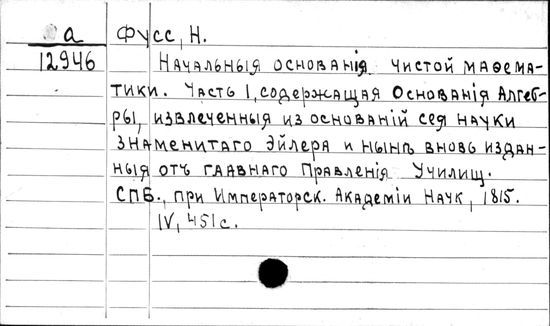 а Фусс, Н.
12946 Начальныя основанія чистой маѳема-
тики. Часть I, содержащая Основанія Алгеб-
ры, извлеченныя из основаній сея науки
знаменитаго Эйлера и нынѣ вновь издан-
ныя отъ главнаго Правленія Училищ.
СПБ., при Императорск. Академіи Наук, 1815.
IV, 451 с.